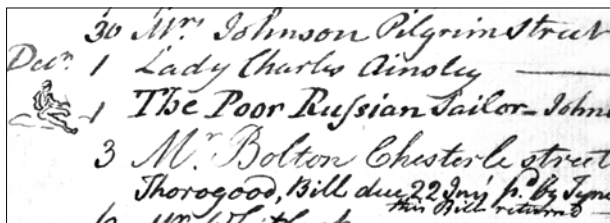 30 Mrs Johnson Pilgrim Street
Decr. 1 Lady Charles Ainsley
1 The Poor Ruſsian Sailor - Johns
3 Mr Bolton Chesterle street
Thorogood, Bill due 22 Jny pd by Tyne
this Bill returned
6